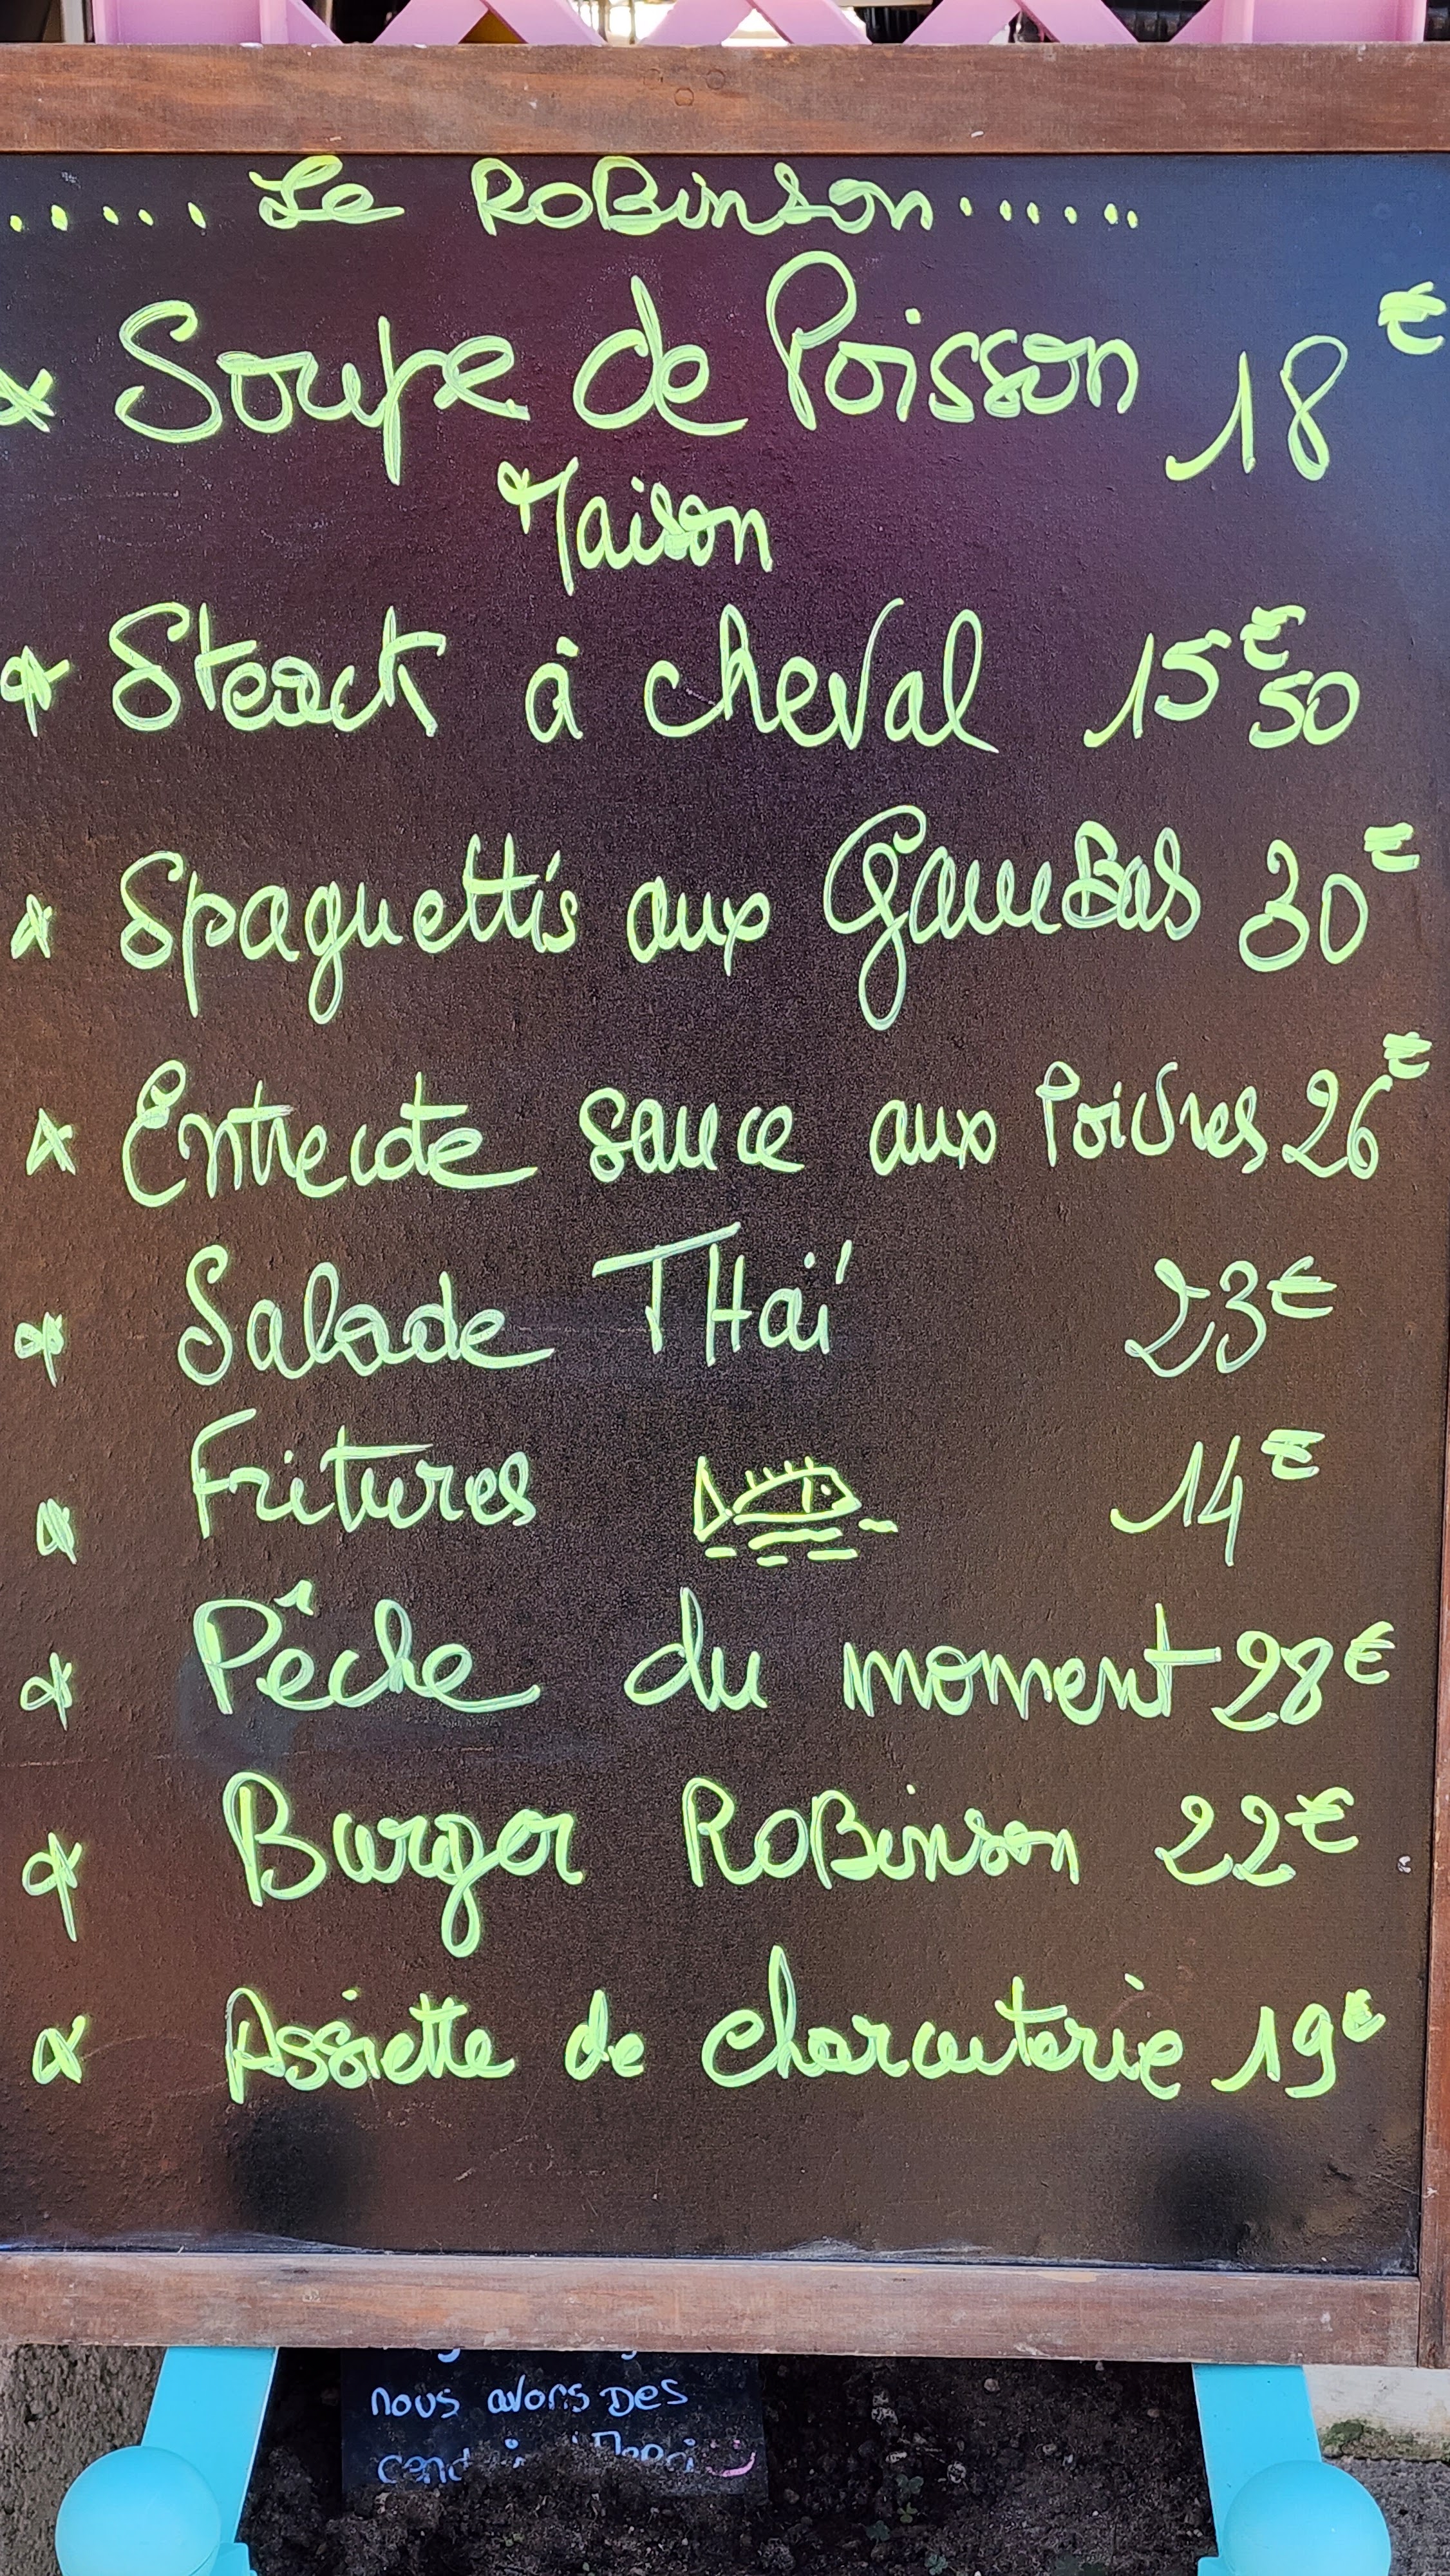 ...... Le RoBinson ......
* Soupe de Poisson 18€
Maison
* Steack à cheval 15€50
* Spaguettis aux GamBas 30€
* Entrecote sauce aux Poivres 26€
* Salade THaï 23€
* Fritures 14€
* Pêche du moment 28€
* Burger RoBinson 22€
* Assiette de charcuterie 19€
nous avons Des